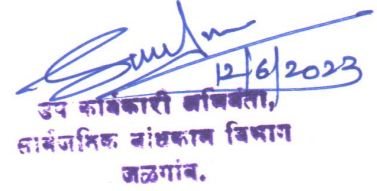 12/6/2023
उप कार्यकारी अभियंता,
सार्वजनिक बांधकाम विभाग
जळगांव.